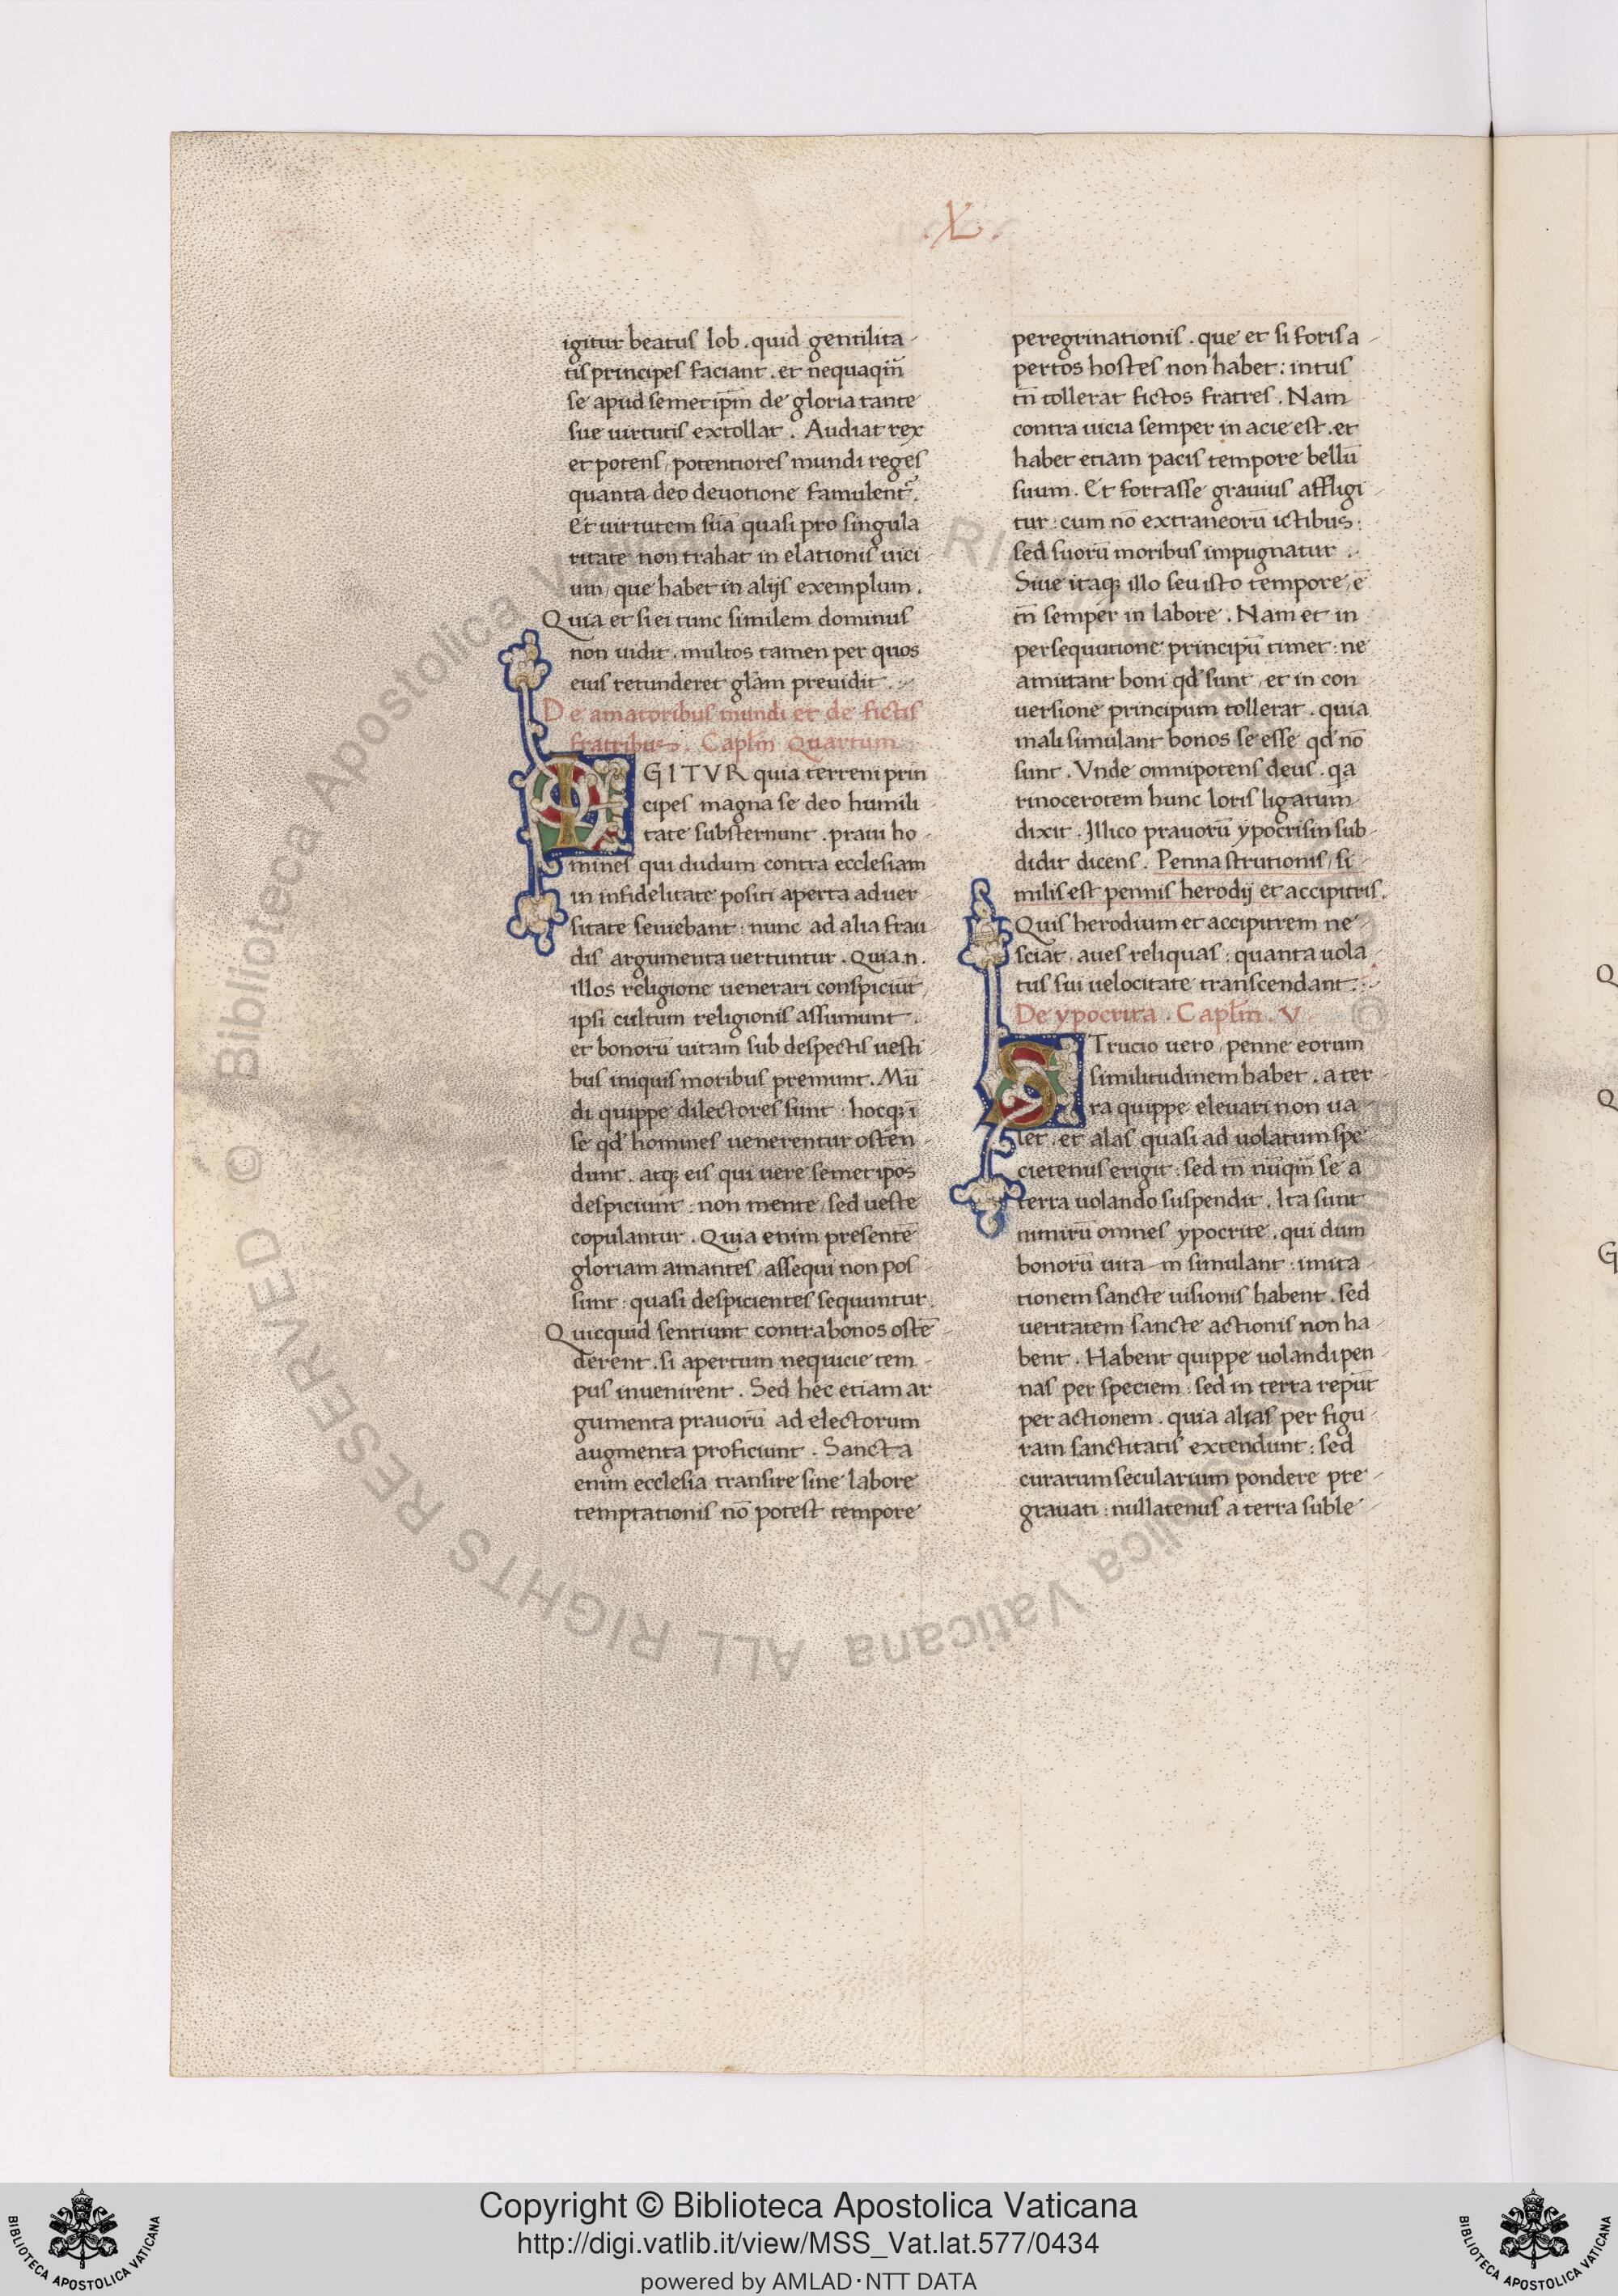 .X.
igitur beatus Iob . quid gentilita-
tis principes faciant . et nequaqm̄
se apud semet ip̄m de gloria tante
sue uirtutis extollat . Audiat rex
et potens, potentiores mundi reges
quanta deo deuotione famulent᷑.
Et uirtutem suā quasi pro singula
ritate non trahat in elationis uici-
um, que habet in alijs exemplum .
Quia et si ei tunc similem dominus
non uidit . multos tamen per quos
eius retunderet glām preuidit .
De amatoribus mundi et de fictis
fratribus . Capl̄m Quartum
IGITVR quia terreni prin
cipes magna se deo humili-
tate substernunt . praui ho-
mines qui dudum contra ecclesiam
in infidelitate positi aperta aduer-
sitate seuiebant : nunc ad alia frau
dis argumenta uertuntur . Quia .n.
illos religione uenerari conspiciūt,
ipsi cultum religionis assumunt .
et bonorū uitam sub despectis uesti-
bus iniquis moribus premunt . Mū
di quippe dilectores sunt : hocq; ī
se qd̓ homines uenerentur osten-
dunt . atq; eis qui uere semet ip̄os
despiciunt : non mente, sed ueste
copulantur . Quia enim presentē
gloriam amantes, assequi non pos-
sunt : quasi despicientes sequuntur.
Quicquid sentiunt contra bonos ostē-
derent . si apertum nequicie tem-
pus inuenirent . Sed hec etiam ar
gumenta prauorū ad electorum
augmenta proficiunt . Sancta
enim ecclesia transire sine labore
temptationis nō potest tempore
peregrinationis . que et si foris a-
pertos hostes non habet : intus
tn̄ tollerat fictos fratres . Nam
contra uicia semper in acie est . et
habet etiam pacis tempore bellū
suum . Et fortasse grauius affligi-
tur : cum nō extraneorū ictibus :
sed suorū moribus impugnatur .
Siue itaq; illo seu isto tempore, ē
tn̄ semper in labore . Nam et in
persequutione principū timet : ne
amittant boni qd̓ sunt, et in con
uersione principum tollerat . quia
mali simulant bonos se esse qd̓ nō
sunt . Vnde omnipotens deus . qa
rinocerotem hunc loris ligatum
dixit . Illico prauorū ypocrisin sub-
didit dicens . Penna strutionis, si-
milis est pennis herodij et accipitris .
Quis herodium et accipitrem ne-
sciat, aues reliquas : quanta uola-
tus sui uelocitate transcendant :
De ypocrita . Capl̄m . V
STrucio uero, penne eorum
similitudinem habet . a ter-
ra quippe eleuari non ua-
let . et alas quasi ad uolatum spe-
cietenus erigit : sed tn̄ nūqm̄ se a
terra uolando suspendit . Ita sunt
nimirū omnes ypocrite . qui dum
bonorū uita m simulant : imita-
tionem sancte uisionis habent . sed
ueritatem sancte actionis non ha-
bent . Habent quippe uolandi pen-
nas per speciem : sed in terra repūt
per actionem . quia alas per figu-
ram sanctitatis extendunt : sed
curarum secularium pondere pre-
grauati : nullatenus a terra suble-
Q
Q
G
© Biblioteca Apostolica Vaticana ALL RIGHTS RESERVED
BIBLIOTECA APOSTOLICA VATICANA
Copyright © Biblioteca Apostolica Vaticana
http://digi.vatlib.it/view/MSS_Vat.lat.577/0434
powered by AMLAD·NTT DATA
BIBLIOTECA APOSTOLICA VATICANA